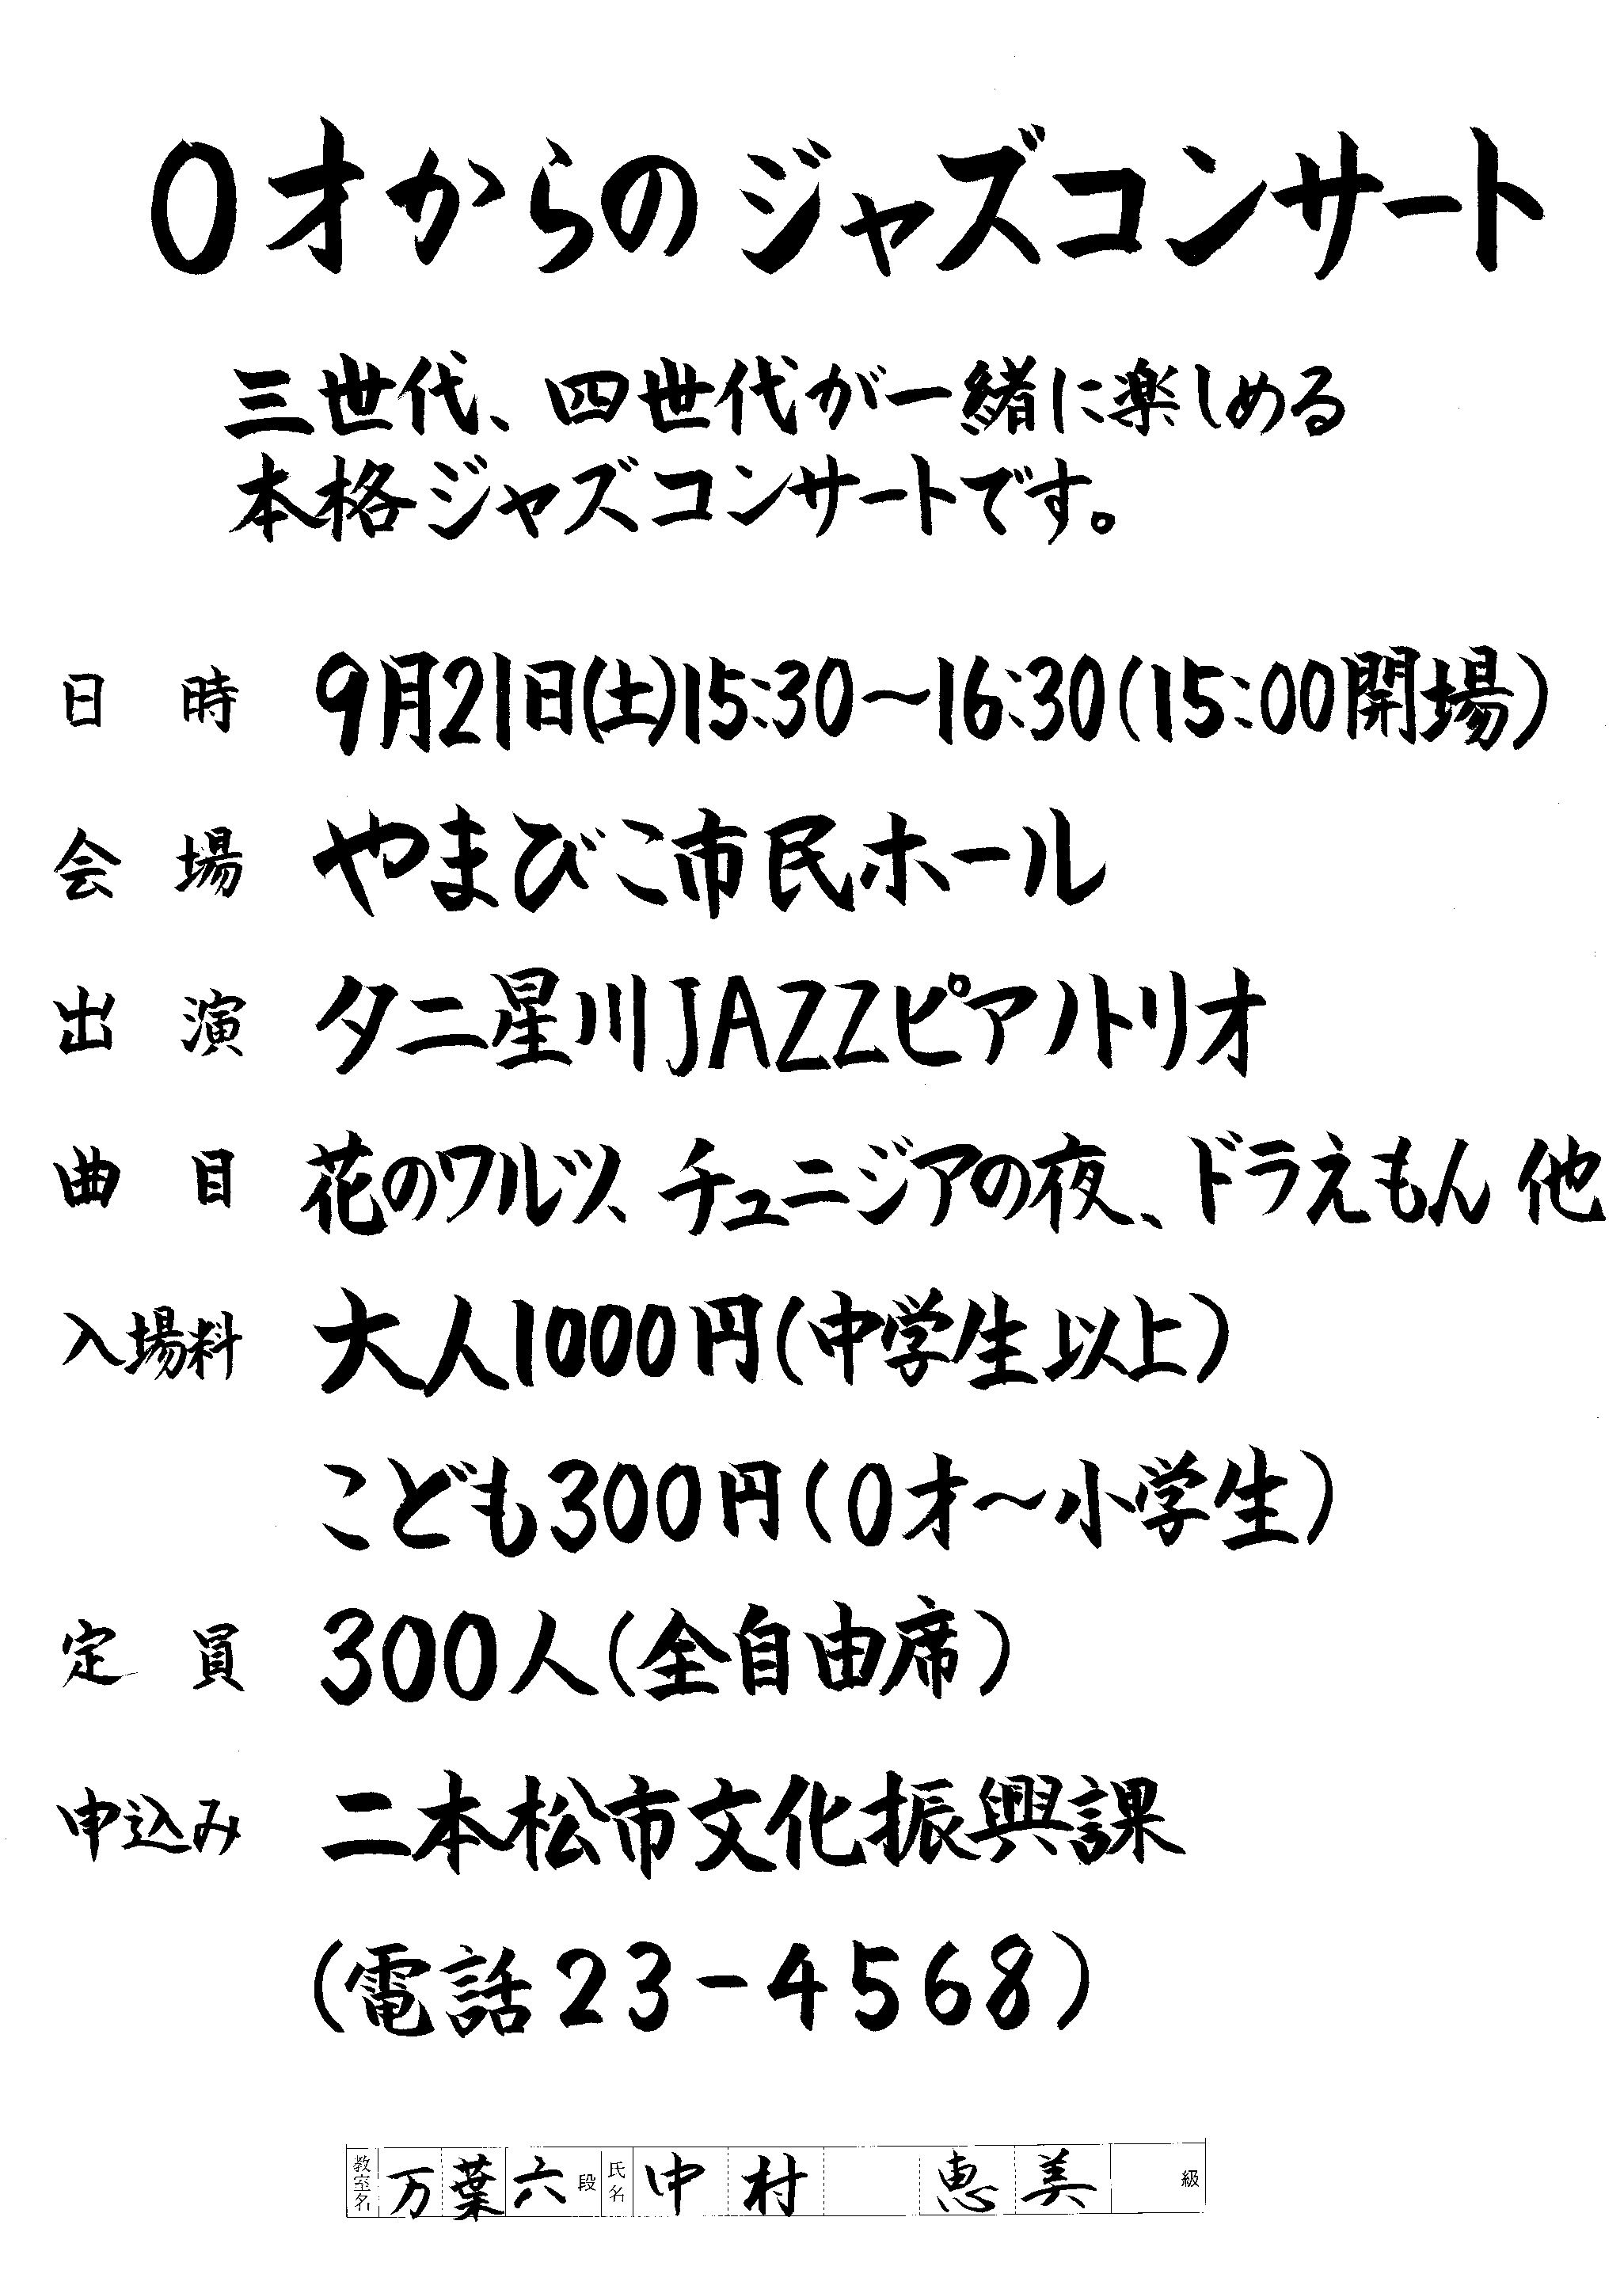 0才からのジャズコンサート
三世代、四世代が一緒に楽しめる
本格ジャズコンサートです。
日時 9月21日(土)15:30～16:30(15:00開場)
会場 やまびこ市民ホール
出演 タニ星川JAZZピアノトリオ
曲目 花のワルツ、チュニジアの夜、ドラえもん 他
入場料 大人1000円(中学生以上)
こども300円(0才～小学生)
定員 300人(全自由席)
申込み 二本松市文化振興課
(電話23-4568)
教室名 万葉 六段 氏名 中村 恵美 級